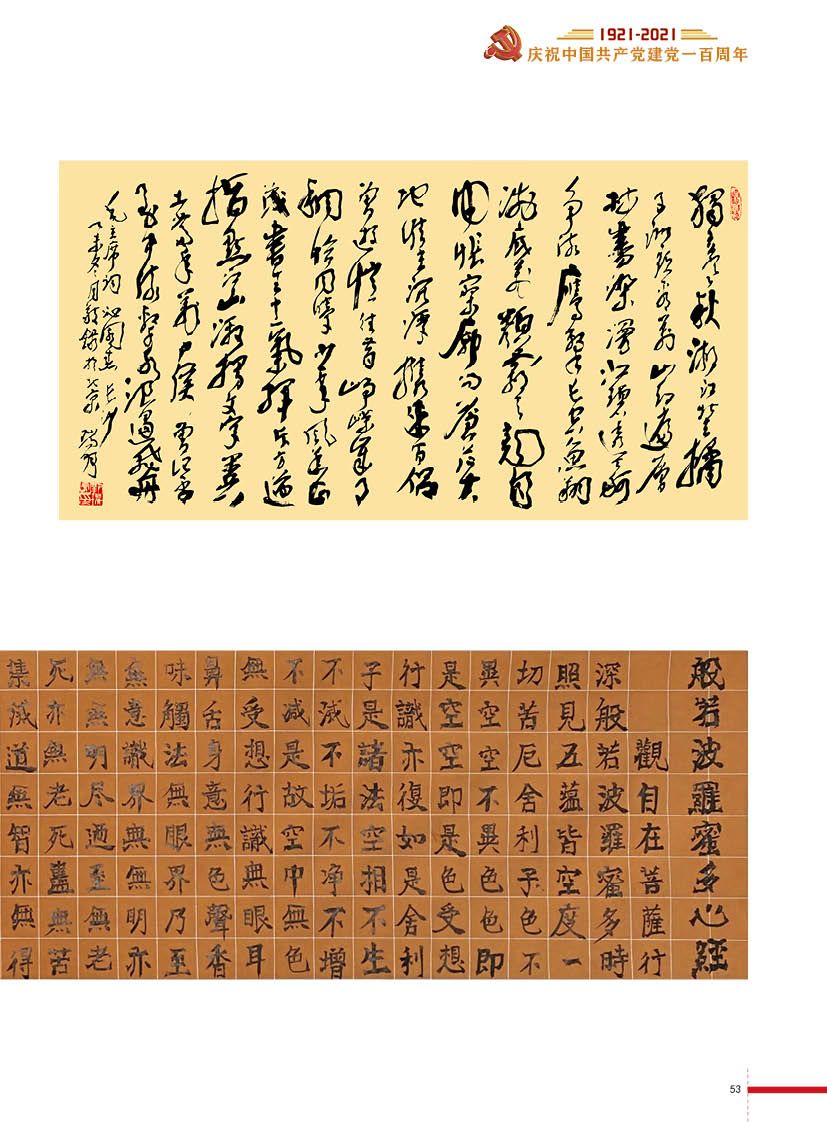 1921-2021
庆祝中国共产党建党一百周年
獨立寒秋湘江北去橘
子洲頭看萬山紅遍層
林盡染漫江碧透百舸
爭流鷹擊長空魚翔
淺底萬類霜天競自
由悵寥廓問蒼茫大
地誰主沉浮攜來百侶
曾遊憶往昔崢嶸歲月
稠恰同學少年風華正
茂書生意氣揮斥方遒
指點江山激揚文字糞
土當年萬戶侯曾記否
到中流擊水浪遏飛舟
毛主席詞沁園春長沙
冬月敬錄於北京
般若波羅蜜多心經
觀自在菩薩行
深般若波羅蜜多時
照見五蘊皆空度一
切苦厄舍利子色不
異空空不異色色即
是空空即是色受想
行識亦復如是舍利
子是諸法空相不生
不滅不垢不净不增
不減是故空中無色
無受想行識無眼耳
鼻舌身意無色聲香
味觸法無眼界乃至
無意識界無無明亦
無無明尽迺至無老
死亦無老死盡無苦
集滅道無智亦無得
53